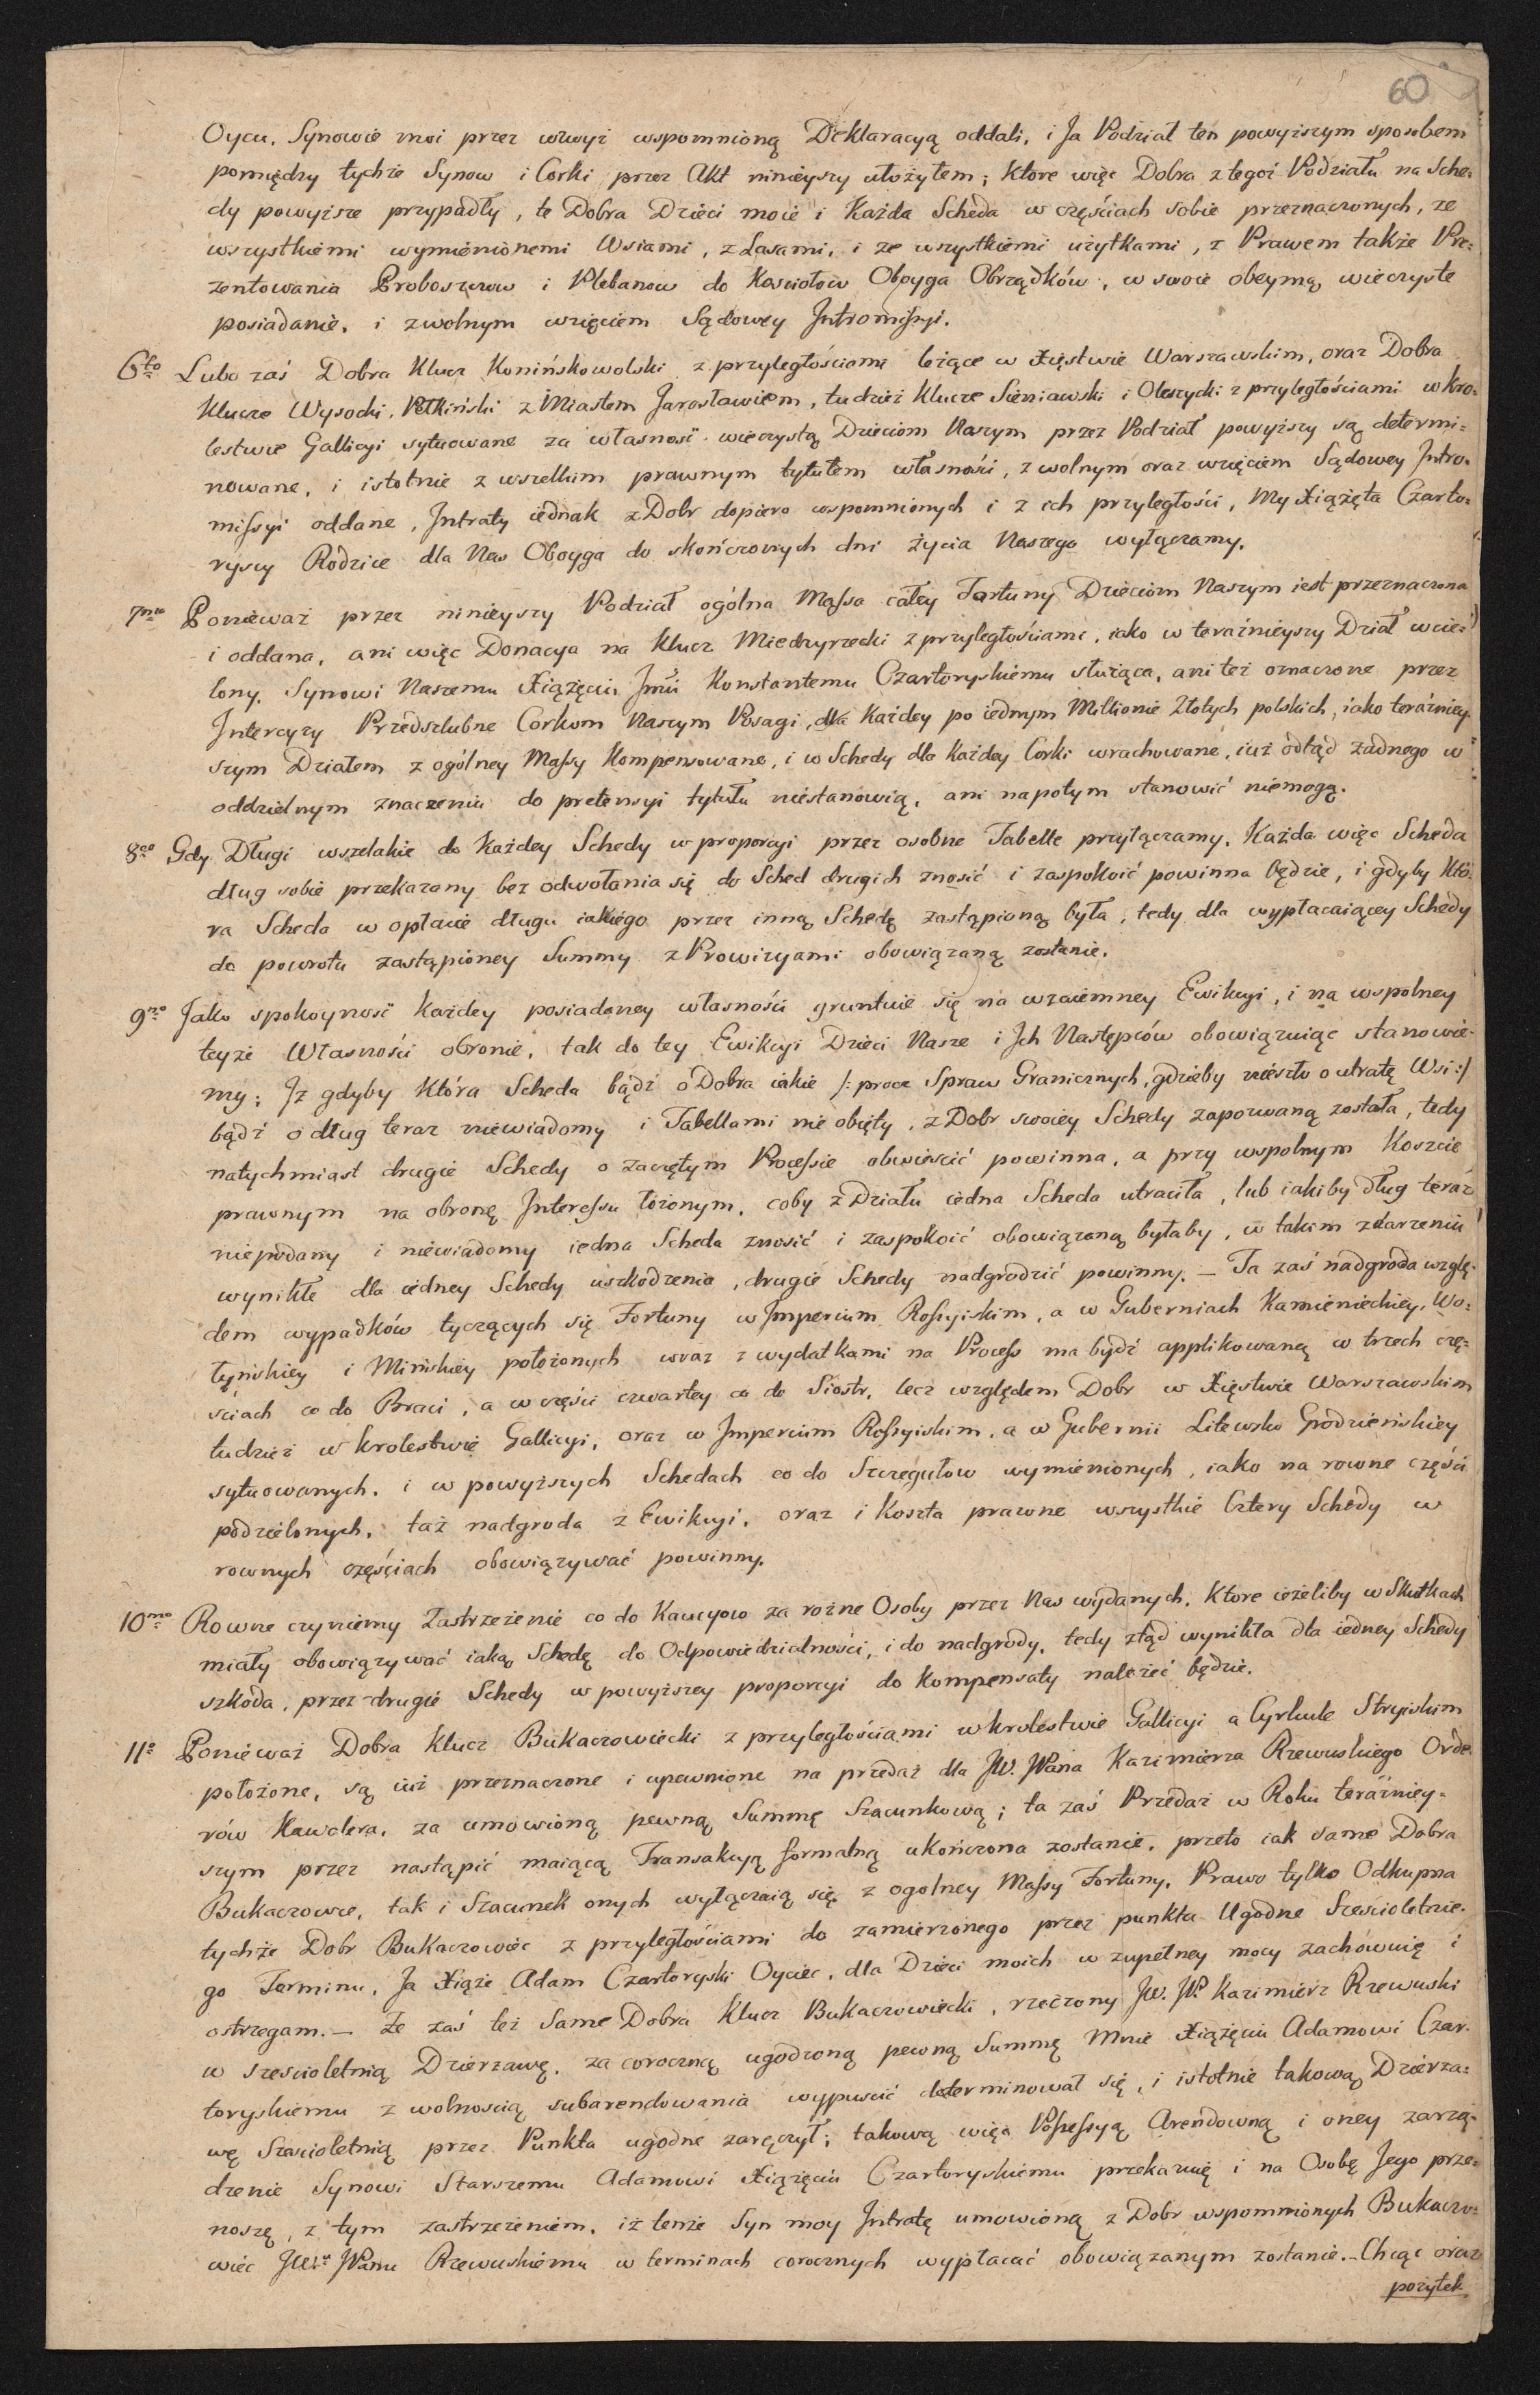 60
Oycu, Synowie moi przez wzwyż wspomnioną Deklaracyą oddali, i Ja Podział ten powyższym sposobem
pomiędzy tychże Synow i Corki przez Akt ninieyszy ułożyłem; Ktore więc Dobra z tegoż Podziału na Sche=
dy powyższe przypadły, te Dobra Dzieci moie i Każda Scheda w częściach sobie przeznaczonych, ze
wszystkiemi wymienionemi Wsiami, z Lasami, i ze wszystkiemi użytkami, z Prawem także Pre=
zentowania Proboszczow i Plebanow do Kosciołow Oboyga Obrządków, w swoie obeymą wieczyste
posiadanie, i z wolnym wzięciem Sądowey Intromissyi.
6to Lubo zaś Dobra Klucz Konińskowolski z przyległościami leżące w Xięstwie Warszawskim, oraz Dobra
Klucze Wysocki, Pełkiński z Miastem Jarosławiem, tudzież Klucze Sieniawski i Oleszycki z przyległościami w Kro=
lestwie Gallicyi sytuowane za własność wieczystą Dzieciom Naszym przez Podział powyższy są determi=
nowane, i istotnie z wszelkim prawnym tytułem własności, z wolnym oraz wzięciem Sądowey Intro=
missyi oddane, Intraty iednak z Dobr dopiero wspomnionych i z ich przyległości, My Xiążęta Czarto=
ryscy Rodzice dla Nas Oboyga do skończonych dni życia Naszego wyłączamy.
7mo Ponieważ przez ninieyszy Podział ogólna Massa całey Fortuny Dzieciom Naszym iest przeznaczona
i oddana, ani więc Donacya na Klucz Miedzyrzecki z przyległościami, iako w teraźnieyszy Dział wcie=
lony, Synowi Naszemu Xiążęciu Jmci Konstantemu Czartoryskiemu służąca, ani też oznaczone przez
Intercyzy Przedszlubne Corkom Naszym Posagi, dla Każdey po iednym Millionie Złotych polskich, iako teraźniey=
szym Działem z ogólney Massy Kompensowane, i w Schedy dla Każdey Corki wrachowane, iuż odtąd żadnego w
oddzielnym znaczeniu do pretensyi tytułu niestanowią, ani napotym stanowić niemogą.
8vo Gdy Długi wszelakie do Każdey Schedy w proporcyi przez osobne Tabelle przyłączamy, Każda więc Scheda
dług sobie przekazany bez odwołania się do Sched drugich znosić i zaspokoić powinna będzie, i gdyby Któ=
ra Scheda w opłacie długu iakiego przez inną Schedę zastąpioną była, tedy dla wypłacaiącey Schedy
do powrotu zastąpioney Summy z Prowizyami obowiązaną zostanie.
9no Jako spokoyność Każdey posiadaney własności gruntuie się na wzaiemney Ewikcyi, i na wspolney
teyże Własności obronie, tak do tey Ewikcyi Dzieci Nasze i Ich Następców obowiązuiąc stanowie=
my; Iż gdyby Która Scheda bądź o Dobra iakie /: procz Spraw Granicznych, gdzieby nieszło o utratę Wsi :/
bądź o dług teraz niewiadomy i Tabellami nie obięty, z Dobr swoiey Schedy zapozwaną została, tedy
natychmiast drugie Schedy o zaczętym Processie obwieścić powinna, a przy wspolnym Koszcie
prawnym na obronę Interessu łożonym, coby z Działu iedna Scheda utraciła, lub iakiby dług teraz
niepodany i niewiadomy iedna Scheda znosić i zaspokoić obowiązaną byłaby, w takim zdarzeniu
wynikłe dla iedney Schedy uszkodzenie, drugie Schedy nadgrodzić powinny. – Ta zaś nadgroda wzglę=
dem wypadków tyczących się Fortuny w Imperium Rossyiskim, a w Guberniach Kamienieckiey, Wo=
łyńskiey i Mińskiey położonych wraz z wydatkami na Process ma bydź applikowaną w trzech czę=
ściach co do Braci, a w części czwartey co do Siostr, lecz względem Dobr w Xięstwie Warszawskim
tudzież w Krolestwie Gallicyi, oraz w Imperium Rossyiskim, a w Gubernii Litewsko Grodzieńskiey
sytuowanych, i w powyższych Schedach co do Szczegułow wymienionych, iako na rowne części
podzielonych, taż nadgroda z Ewikcyi, oraz i Koszta prawne wszystkie Cztery Schedy w
rownych częściach obowiązywać powinny.
10mo Rowne czyniemy Zastrzeżenie co do Kaucyow za rożne Osoby przez Nas wydanych, Ktore ieżeliby w Skutkach
miały obowiązywać iaką Schedę do Odpowiedzialności, i do nadgrody, tedy ztąd wynikła dla iedney Schedy
szkoda, przez drugie Schedy w powyższey proporcyi do Kompensaty należeć będzie.
11o Ponieważ Dobra Klucz Bukaczowiecki z przyległościami w Krolestwie Gallicyi a Cyrkule Stryiskim
położone, są iuż przeznaczone i upewnione na przedaż dla JW. JPana Kazimierza Rzewuskiego Orde=
rów Kawalera, za umowioną pewną Summę Szacunkową; ta zaś Przedaż w Roku teraźniey=
szym przez nastąpić maiącą Transakcyą formalną ukończona zostanie, przeto iak same Dobra
Bukaczowce, tak i Szacunek onych wyłączaią się z ogolney Massy Fortuny. Prawo tylko Odkupna
tychże Dobr Bukaczowiec z przyległościami do zamierzonego przez punkta Ugodne Szescioletnie=
go Terminu, Ja Xiąże Adam Czartoryski Oyciec, dla Dzieci moich w zupełney mocy zachowuię i
ostrzegam. – Że zaś też Same Dobra Klucz Bukaczowiecki, rzeczony JW. JP. Kazimierz Rzewuski
w szescioletnią Dzierżawę, za coroczną ugodzoną pewną Summę Mnie Xiążęciu Adamowi Czar=
toryskiemu z wolnością subarendowania wypuscić determinował się, i istotnie takową Dzierża=
wę Szescioletnią przez Punkta ugodne zaręczył; takową więc Possessyą Arendowną i oney zarzą=
dzenie Synowi Starszemu Adamowi Xiążęciu Czartoryskiemu przekazuię i na Osobę Jego prze=
noszę, z tym zastrzeżeniem, iż tenże Syn moy Intratę umowioną z Dobr wspomnionych Bukaczo=
wiec JWmu JPanu Rzewuskiemu w terminach corocznych wypłacać obowiązanym zostanie. – Chcąc oraz
pożytek